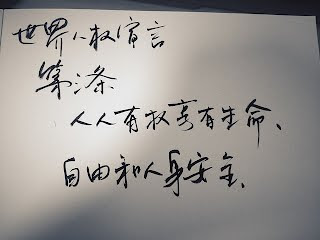 世界人权宣言
第三条
人人有权享有生命、
自由和人身安全、